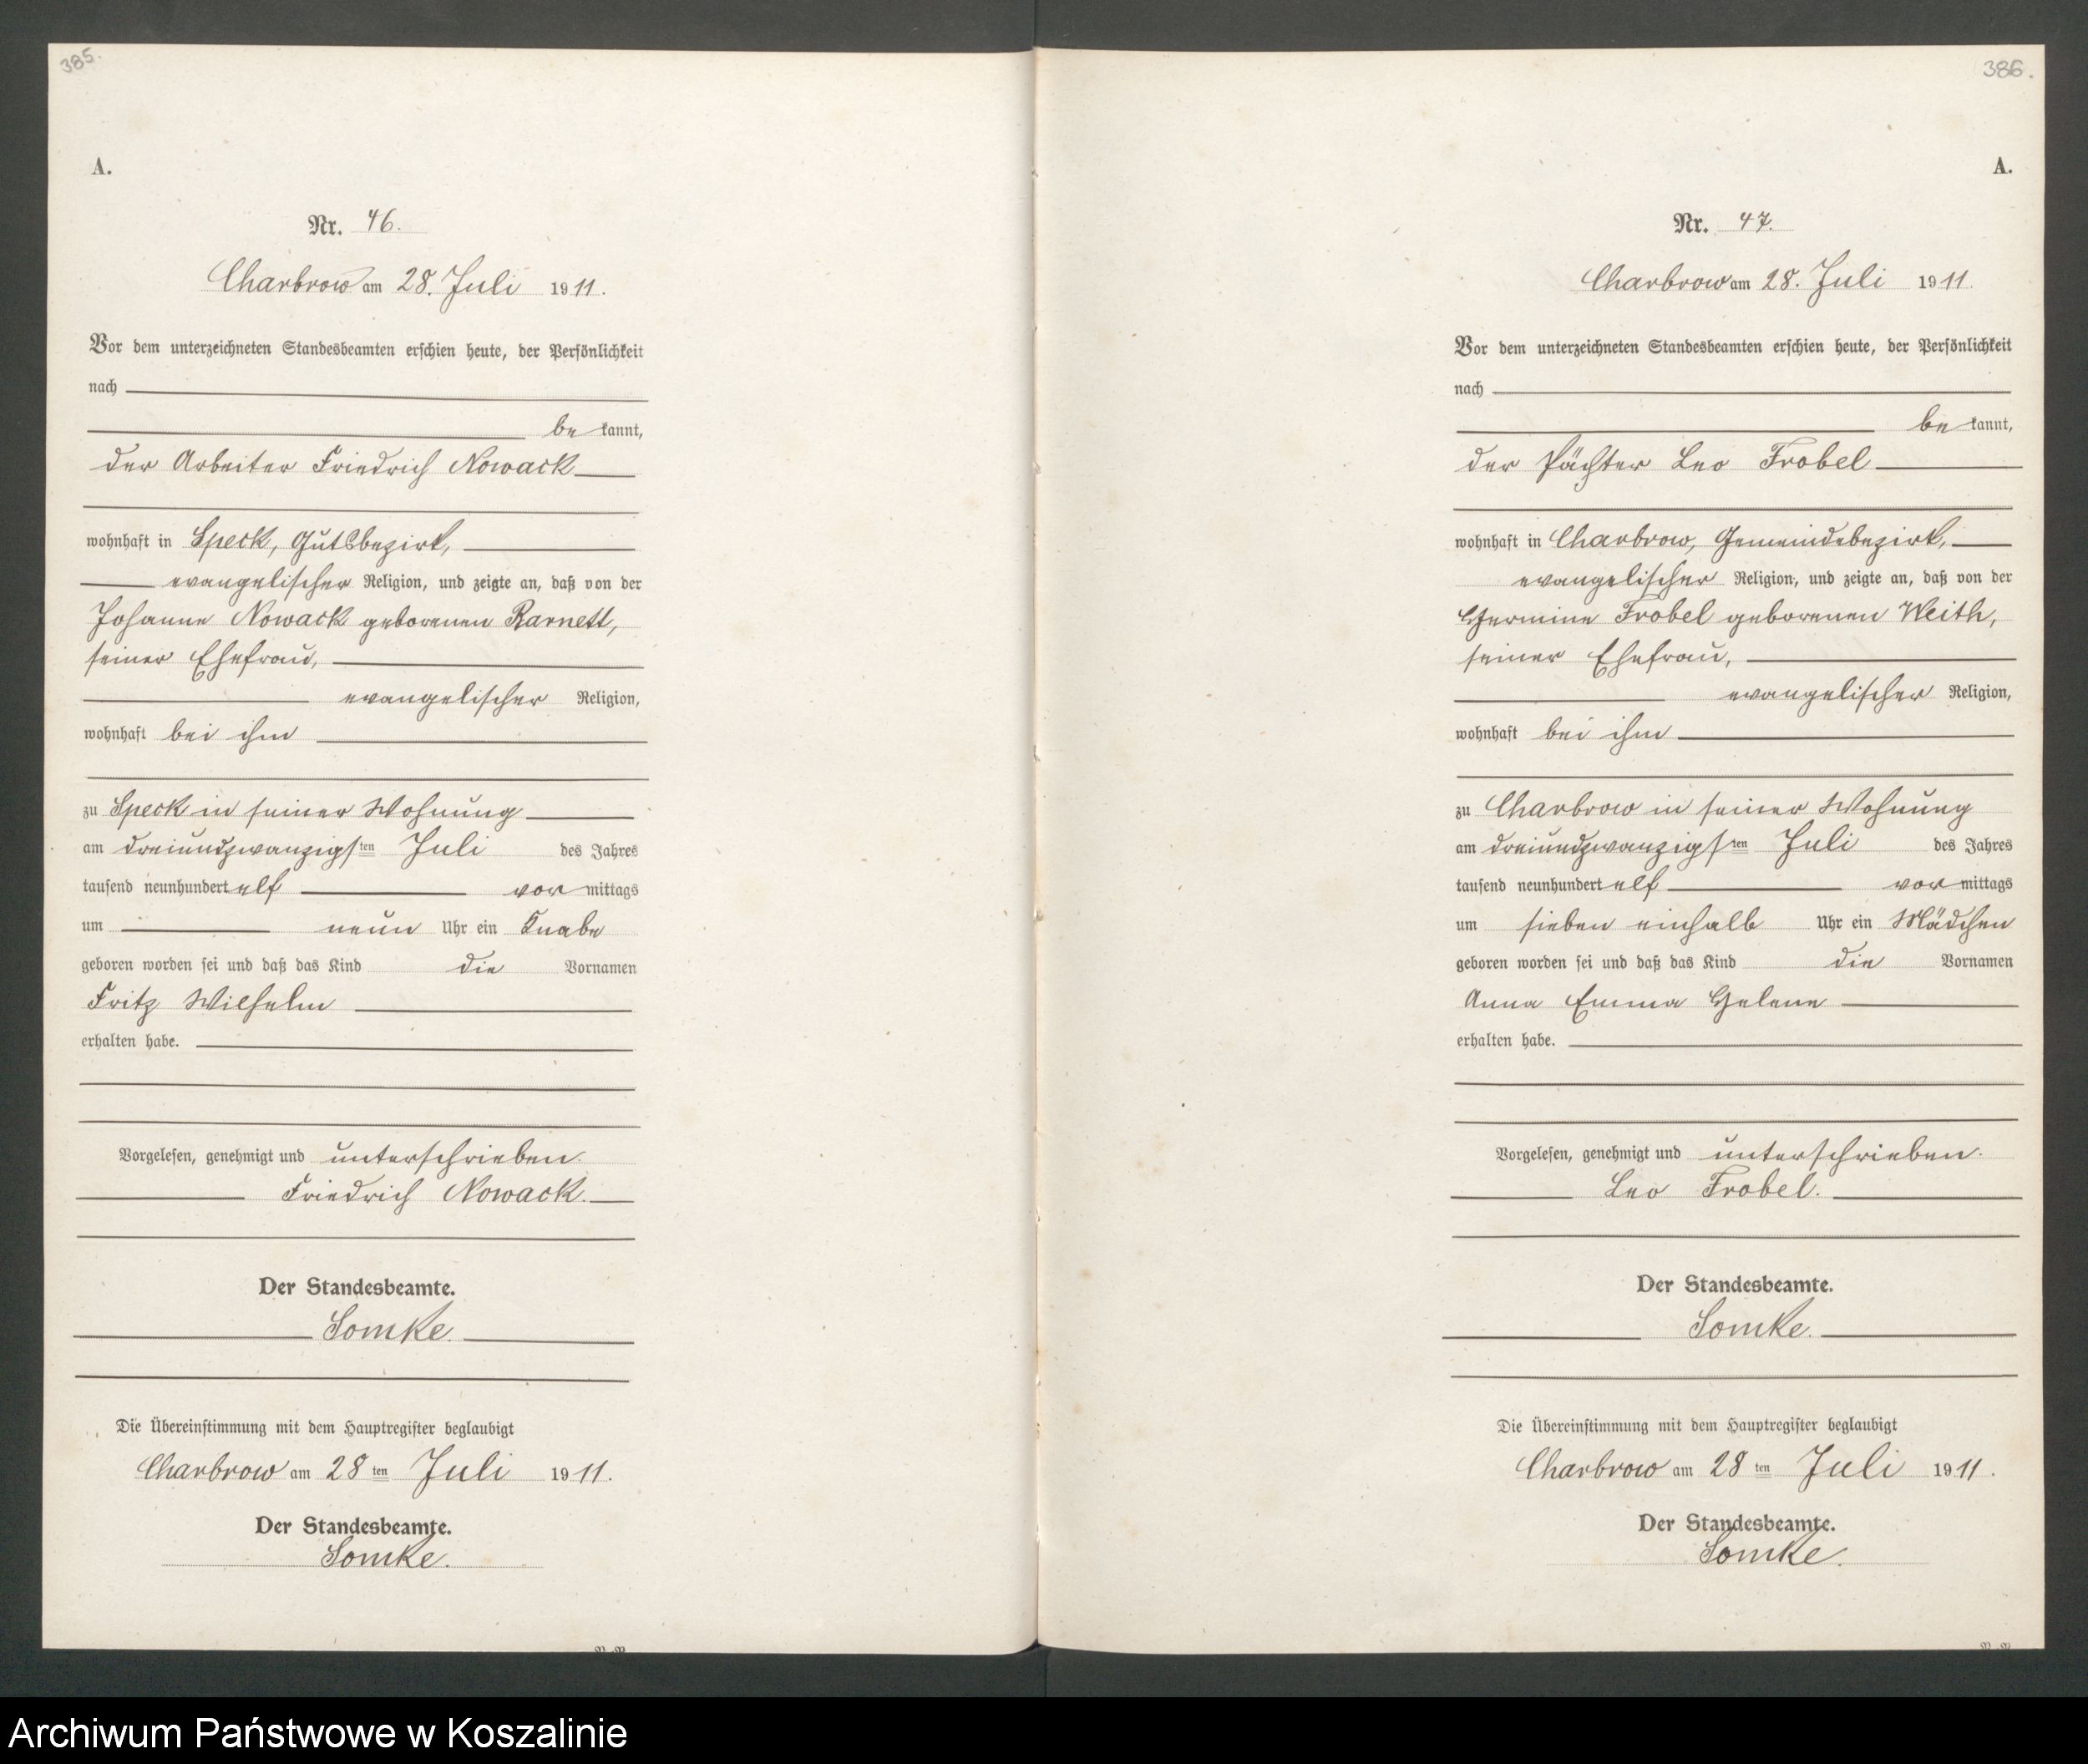 385.
A.
Nr. 46.
Charbrow am 28. Juli 1911.
Vor dem unterzeichneten Standesbeamten erschien heute, der Persönlichkeit
nach
be kannt,
der Arbeiter Friedrich Nowack
wohnhaft in Speck, Gutsbezirk,
evangelischer Religion, und zeigte an, daß von der
Johanne Nowack geborenen Rarnett,
seiner Ehefrau,
evangelischer Religion,
wohnhaft bei ihm
zu Speck in seiner Wohnung
am dreiundzwanzigsten Juli des Jahres
tausend neunhundert elf vor mittags
um neun Uhr ein Knabe
geboren worden sei und daß das Kind die Vornamen
Fritz Wilhelm
erhalten habe.
Vorgelesen, genehmigt und unterschrieben.
Friedrich Nowack.
Der Standesbeamte.
Somke.
Die Übereinstimmung mit dem Hauptregister beglaubigt
Charbrow am 28 ten Juli 1911.
Der Standesbeamte.
Somke.
386.
A.
Nr. 47.
Charbrow am 28. Juli 1911.
Vor dem unterzeichneten Standesbeamten erschien heute, der Persönlichkeit
nach
be kannt,
der Pächter Leo Frobel
wohnhaft in Charbrow, Gemeindebezirk,
evangelischer Religion, und zeigte an, daß von der
Hermine Frobel geborenen Weith,
seiner Ehefrau,
evangelischer Religion,
wohnhaft bei ihm
zu Charbrow in seiner Wohnung
am dreiundzwanzigsten Juli des Jahres
tausend neunhundert elf vor mittags
um sieben einhalb Uhr ein Mädchen
geboren worden sei und daß das Kind die Vornamen
Anna Emma Helene
erhalten habe.
Vorgelesen, genehmigt und unterschrieben.
Leo Frobel.
Der Standesbeamte.
Somke.
Die Übereinstimmung mit dem Hauptregister beglaubigt
Charbrow am 28 ten Juli 1911.
Der Standesbeamte.
Somke.
Archiwum Państwowe w Koszalinie